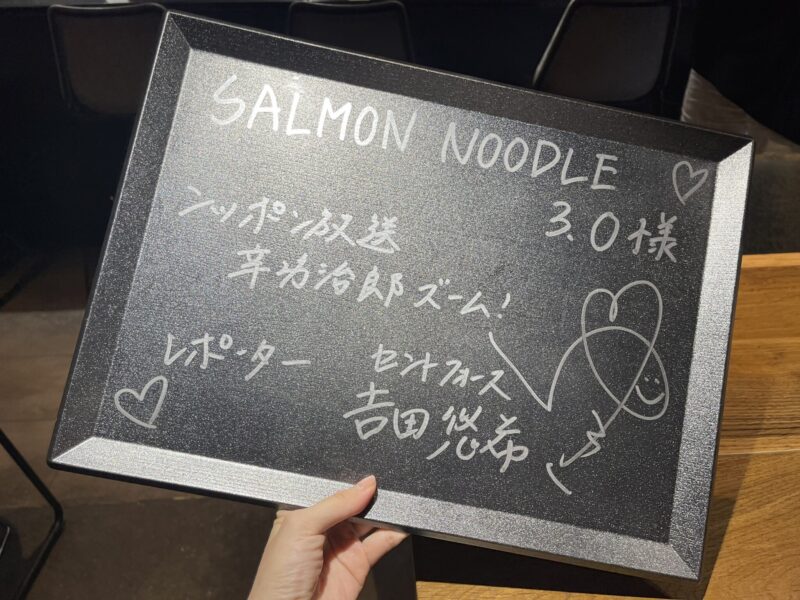 SALMON NOODLE
3.0様
ニッポン放送
辛坊治郎ズーム!
レポーター
セントフォース
吉田悠希